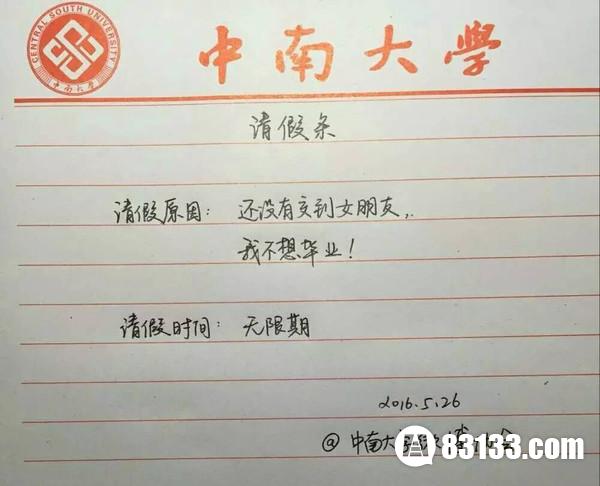 CENTRAL SOUTH UNIVERSITY
中南大学
中南大學
请假条
请假原因：还没有交到女朋友，
我不想毕业！
请假时间：无限期
2016.5.26
@中南大学
83133.com